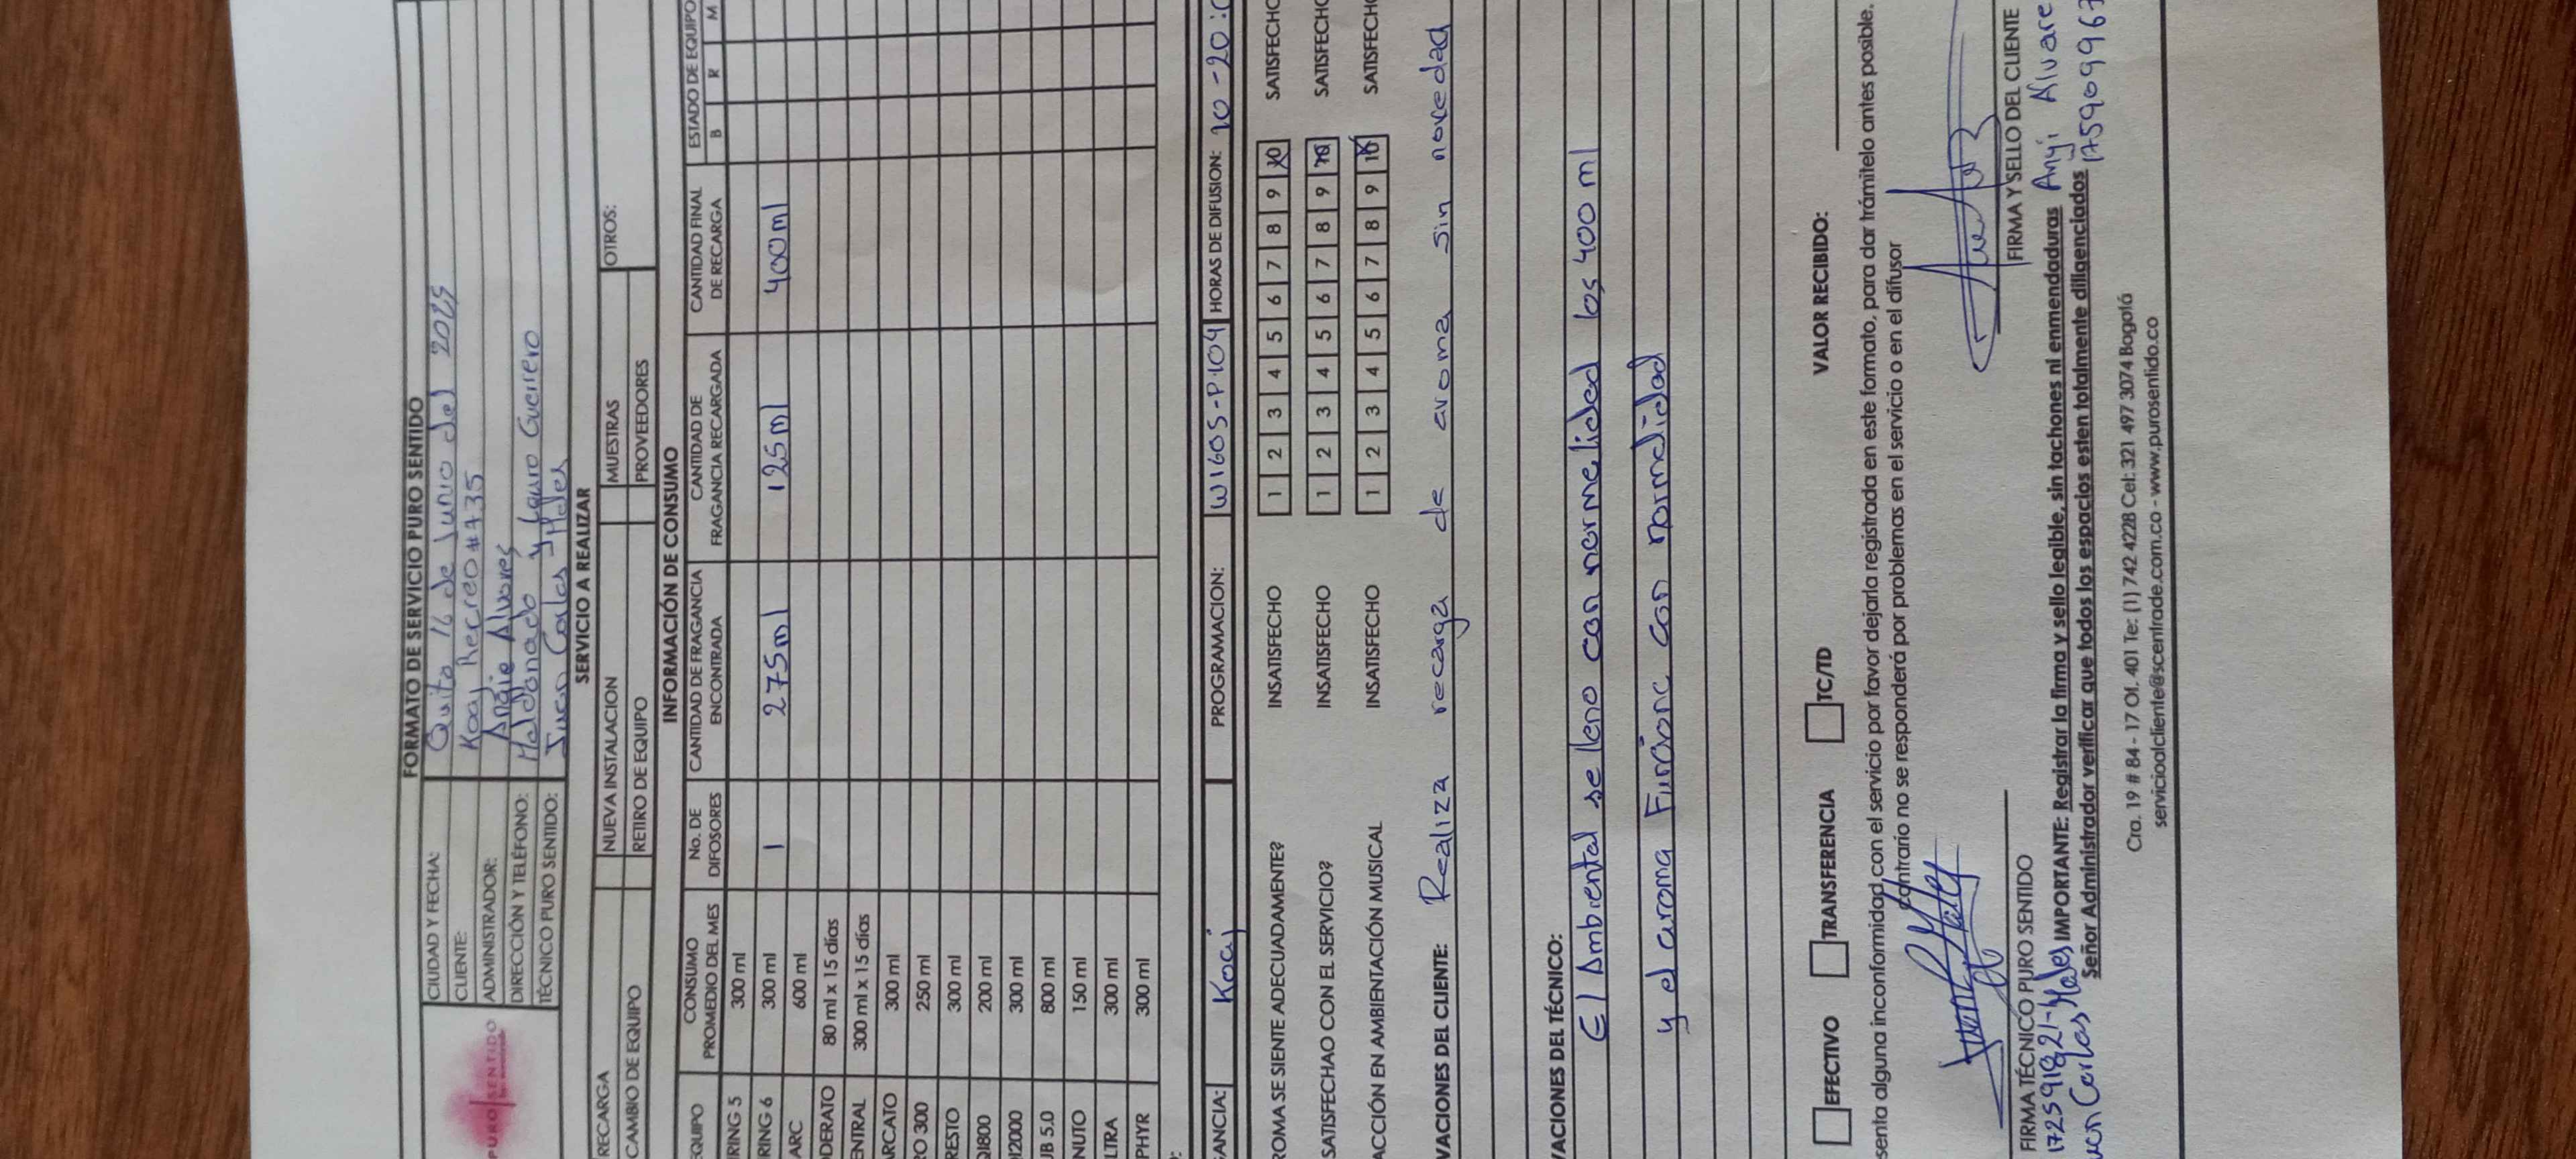 FORMATO DE SERVICIO PURO SENTIDO
PURO SENTIDO
CIUDAD Y FECHA: Quito 16 de Junio del 2025
CLIENTE: Koaj Recreo #735
ADMINISTRADOR: Angie Alvares
DIRECCIÓN Y TELÉFONO: Maldonado y Lauro Guerrero
TÉCNICO PURO SENTIDO: Juan Carlos Males
SERVICIO A REALIZAR
RECARGA NUEVA INSTALACION MUESTRAS OTROS:
CAMBIO DE EQUIPO RETIRO DE EQUIPO PROVEEDORES
INFORMACIÓN DE CONSUMO
EQUIPO CONSUMO PROMEDIO DEL MES No. DE DIFOSORES CANTIDAD DE FRAGANCIA ENCONTRADA CANTIDAD DE FRAGANCIA RECARGADA CANTIDAD FINAL DE RECARGA ESTADO DE EQUIPO
B R M
RING 5 300 ml
RING 6 300 ml 1 275ml 125ml 400ml
ARC 600 ml
DERATO 80 ml x 15 días
ENTRAL 300 ml x 15 días
ARCATO 300 ml
RO 300 250 ml
RESTO 300 ml
QI800 200 ml
DI2000 300 ml
UB 5.0 800 ml
NUTO 150 ml
LTRA 300 ml
PHYR 300 ml
GANCIA: Koaj PROGRAMACION: W160S-P104 HORAS DE DIFUSION: 10-20:0
ROMA SE SIENTE ADECUADAMENTE? INSATISFECHO 1 2 3 4 5 6 7 8 9 10 SATISFECHO
SATISFECHAO CON EL SERVICIO? INSATISFECHO 1 2 3 4 5 6 7 8 9 10 SATISFECHO
ACCIÓN EN AMBIENTACIÓN MUSICAL INSATISFECHO 1 2 3 4 5 6 7 8 9 10 SATISFECHO
VACIONES DEL CLIENTE: Realiza recarga de aroma sin novedad
VACIONES DEL TÉCNICO:
El Ambiental se lleno con normalidad los 400 ml
y el aroma Funcionc con normalidad
EFECTIVO TRANSFERENCIA TC/TD VALOR RECIBIDO:
senta alguna inconformidad con el servicio por favor dejarla registrada en este formato, para dar trámitelo antes posible.
contrario no se responderá por problemas en el servicio o en el difusor
FIRMA TÉCNICO PURO SENTIDO FIRMA Y SELLO DEL CLIENTE
1725918821-
Carlos Males
Anyi Alvare
175909967
IMPORTANTE: Registrar la firma y sello legible, sin tachones ni enmendaduras
Señor Administrador verificar que todos los espacios esten totalmente diligenciados
Cra. 19 # 84 - 17 Of. 401 Te: (1) 742 4228 Cel: 321 497 3074 Bogotá
servicioalcliente@scentrade.com.co - www.purosentido.co